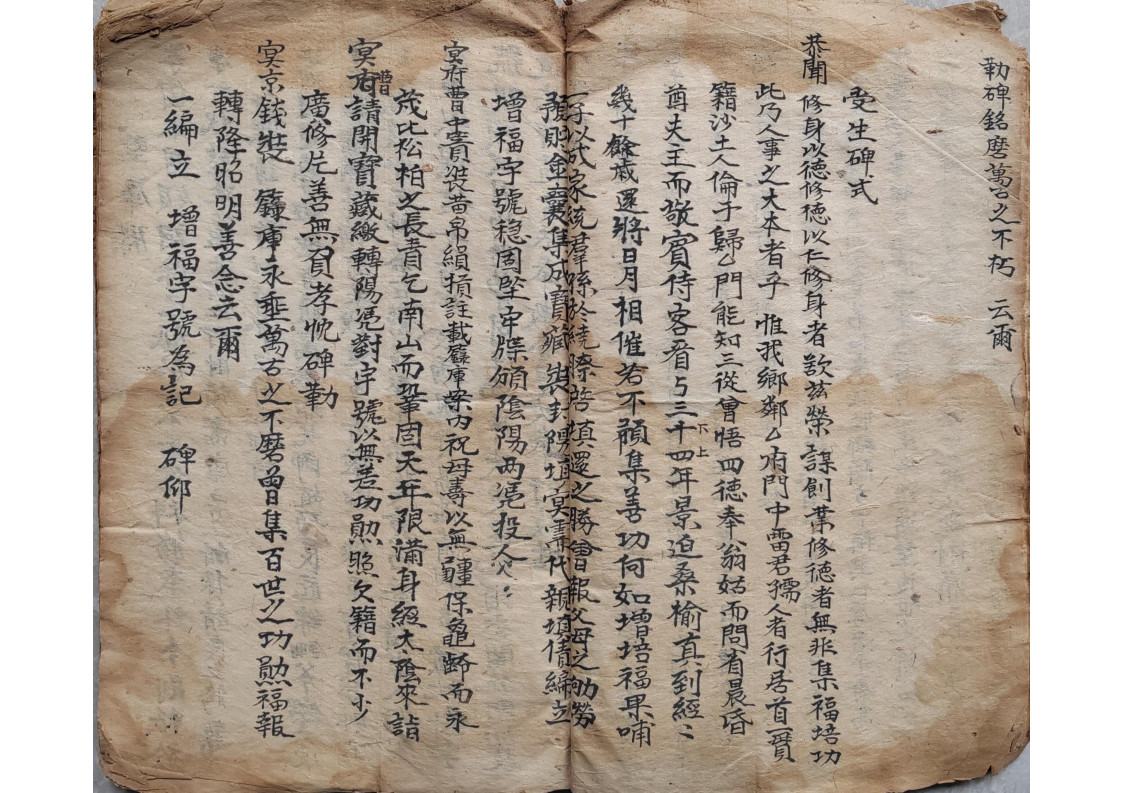 勒碑銘磨萬古之不朽 云爾
受生碑式
恭聞 修身以德修德以仁修身者欲茲榮謀創業修德者無非集福培功
此乃人事之大本者乎 惟我鄉鄰厶府門中雷君孺人者行居首賈
籍沙土人倫于歸厶門能知三從曾悟四德奉翁姑而問省晨昏
酋夫主而敬賓待客眉与三十四年景迫桑榆真到經〻
下上
幾十餘歲還將日月相催若不預集善功何如增培福果哺
一子以成家統羣孫於繞膝啓填還之勝會報父母之劬勞
預則金囊集成寶藏裝封陽填冥需代親填債編立
增福字號穩固堅牢牒頒陰陽兩憑投人〻
冥府曹中責裝黃帛繦損註載籙庫案內祝母壽以無疆保龜齡而永
茂比松柏之長青乞南山而鞏固天年限滿身經太陰來詣
冥府曹請開寶藏繳轉陽憑對字號以無差功勛照欠籍而不少
廣修片善無負孝忱碑勒
冥京錢裝籙庫永垂萬古之不磨曾集百世之功勛福報
轉降昭明善念云爾
一編立 增福字號為記 碑仰